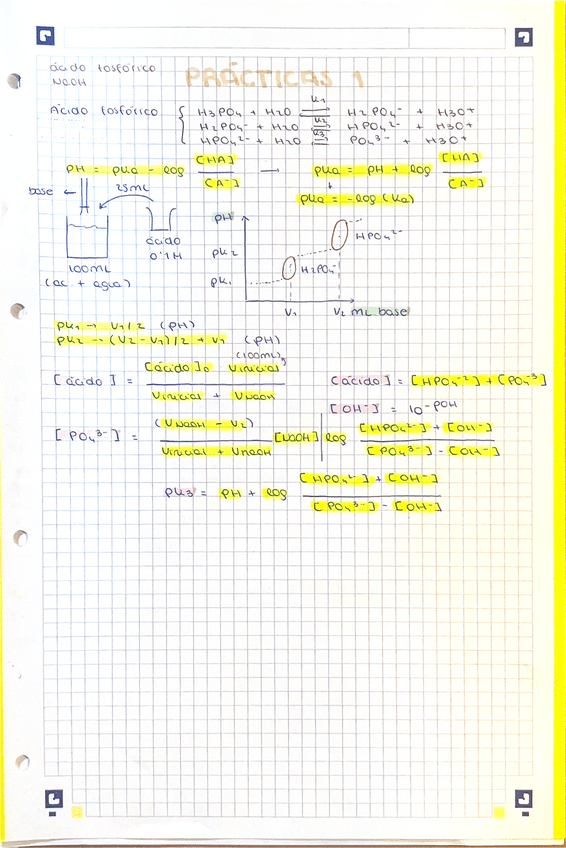 ácido fosfórico
NaOH
PRÁCTICAS 1
Ácido fosfórico { H3PO4 + H2O ⇌ (K1) H2PO4⁻ + H3O⁺
H2PO4⁻ + H2O ⇌ (K2) HPO4²⁻ + H3O⁺
HPO4²⁻ + H2O ⇌ (K3) PO4³⁻ + H3O⁺
PH = pKa - log [HA] / [A⁻] → pKa = PH + log [HA] / [A⁻]
pKa = -log (Ka)
base ←
25mL
ácido
0'1M
100mL
(ac. + agua)
PH
pK2
pK1
HPO4²⁻
H2PO4⁻
V1
V2
mL base
pK1 → V1/2 (PH)
pK2 → (V2-V1)/2 + V1 (PH)
(100mL)
[ácido] = [ácido]0 Vinicial / Vinicial + VNaOH
[ácido] = [HPO4⁻²] + [PO4⁻³]
[OH⁻] = 10⁻ᵖᴼᴴ
[PO4³⁻] = (VNaOH - V2) / Vinicial + VNaOH [NaOH] | log [HPO4²⁻] + [OH⁻] / [PO4³⁻] - [OH⁻]
pK3 = PH + log [HPO4²⁻] + [OH⁻] / [PO4³⁻] - [OH⁻]